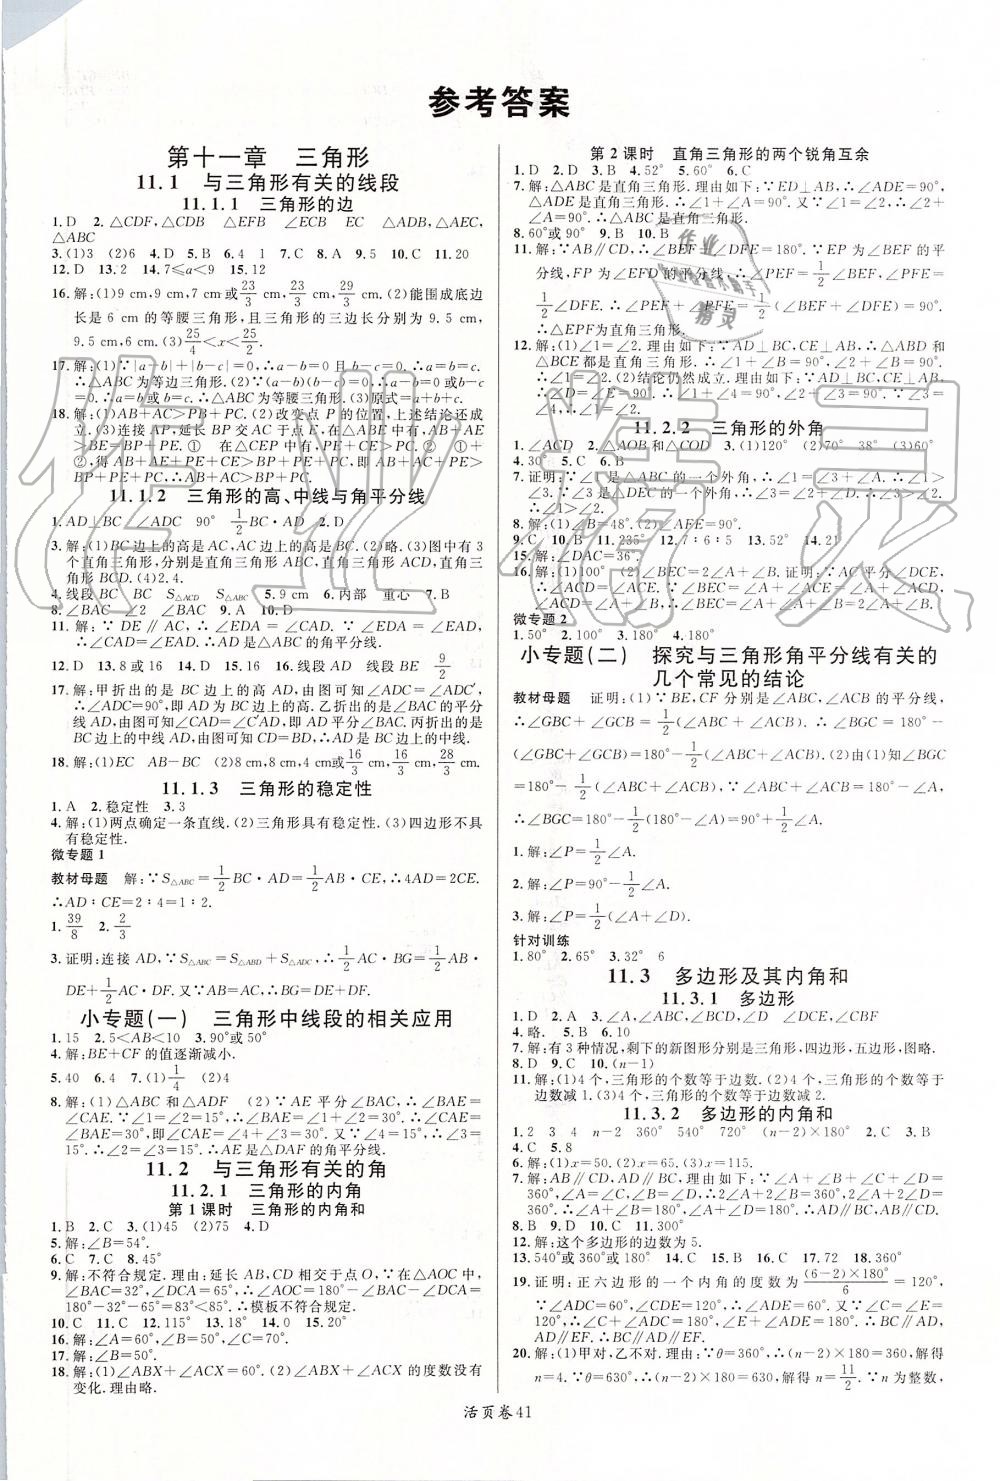 参考答案
第十一章　三角形
11.1　与三角形有关的线段
11.1.1　三角形的边
1.D　2.△CDF,△CDB　△EFB　∠ECB　EC　△ADB,△AEC,
△ABC
3.(1)3　(2)6　4.D　5.B　6.4　1　7.C　8.A　9.5　10.C　11.20
12.D　13.2　14.7≤a<9　15.12
16.解:(1)9 cm,9 cm,7 cm或23/3 cm,23/3 cm,29/3 cm.(2)能围成底边
长是 6 cm 的等腰三角形,且三角形的三边长分别为 9.5 cm,
9.5 cm,6 cm.(3)25/4<x<25/2.
17.解:(1)∵|a-b|+|b-c|=0,∴a-b=0 且 b-c=0.∴a=b=c.
∴△ABC为等边三角形.(2)∵(a-b)(b-c)=0,∴a-b=0或b-c
=0.∴a=b或b=c.∴△ABC为等腰三角形.(3)原式=a+b+c.
18.解:(1)AB+AC>PB+PC.(2)改变点 P 的位置,上述结论还成
立.(3)连接 AP,延长 BP 交 AC 于点 E,在△ABE 中,有 AB+AE
>BE=BP+PE.①　在△CEP 中,有 PE+CE>PC.②　①+
②,得 AB+AE+PE+CE>BP+PE+PC,即 AB+AC+PE>
BP+PE+PC.∴AB+AC>BP+PC.
11.1.2　三角形的高、中线与角平分线
1.AD⊥BC　∠ADC　90°　1/2BC·AD　2.D
3.解:(1)BC边上的高是 AC,AC边上的高是 BC.(2)略.(3)图中有 3
个直角三角形,分别是直角三角形 ABC,直角三角形 ACD,直角三
角形 BCD.(4)2.4.
4.线段 BC　BC　S△ACD　S△ABC　5.9 cm　6.内部　重心　7.B
8.∠BAC　∠2　∠BAC　9.A　10.D
11.解:∵DE∥AC,∴∠EDA=∠CAD.∵∠EDA=∠EAD,
∴∠CAD=∠EAD.∴AD是△ABC的角平分线.
12.D　13.8或 16　14.D　15.16　16.线段 AD　线段 BE　9/2
17.解:甲折出的是 BC 边上的高 AD,由图可知∠ADC=∠ADC′,
∴∠ADC=90°,即 AD 为 BC 边上的高.乙折出的是∠BAC的平分
线AD,由图可知∠CAD=∠C′AD,即 AD 平分∠BAC.丙折出的是
BC边上的中线 AD,由图可知 CD=BD,∴AD是 BC边上的中线.
18.解:(1)EC　AB-BC　(2)8 cm,8 cm,4 cm或16/3 cm,16/3 cm,28/3 cm.
11.1.3　三角形的稳定性
1.A　2.稳定性　3.3
4.解:(1)两点确定一条直线.(2)三角形具有稳定性.(3)四边形不具
有稳定性.
微专题 1
教材母题　解:∵S△ABC=1/2BC·AD=1/2AB·CE,∴4AD=2CE.
∴AD∶CE=2∶4=1∶2.
1.39/8　2.2/3
3.证明:连接 AD,∵S△ABC=S△ABD+S△ADC,∴1/2AC·BG=1/2AB·
DE+1/2AC·DF.又∵AB=AC,∴BG=DE+DF.
小专题(一)　三角形中线段的相关应用
1.15　2.5<AB<10　3.90°或 50°
4.解:BE+CF的值逐渐减小.
5.40　6.4　7.(1)1/4　(2)4
8.解:(1)△ABC 和△ADF　(2)∵AE 平分∠BAC,∴∠BAE=
∠CAE.∵∠1=∠2=15°,∴∠BAE=∠1+∠2=15°+15°=
30°.∴∠CAE=∠BAE=30°,即∠CAE=∠4+∠3=30°.又∵
∠4=15°,∴∠3=15°.∴∠2=∠3=15°.∴AE是△DAF的角平分线.
11.2　与三角形有关的角
11.2.1　三角形的内角
第 1 课时　三角形的内角和
1.B　2.C　3.(1)45　(2)75　4.D
5.解:∠B=54°.
6.C　7.C　8.45°
9.解:不符合规定.理由:延长 AB,CD 相交于点 O,∵在△AOC中,
∠BAC=32°,∠DCA=65°,∴∠AOC=180°-∠BAC-∠DCA=
180°-32°-65°=83°<85°.∴模板不符合规定.
10.C　11.C　12.115°　13.18°　14.0　15.20°
16.解:∠A=60°,∠B=50°,∠C=70°.
17.解:∠B=50°.
18.解:(1)∠ABX+∠ACX=60°.(2)∠ABX+∠ACX的度数没有
变化.理由略.
第 2 课时　直角三角形的两个锐角互余
1.D　2.D　3.B　4.52°　5.60°　6.C
7.解:△ABC是直角三角形.理由如下:∵ED⊥AB,∴∠ADE=90°,
∴∠1+∠A=90°.又∵∠1=∠2,∴∠2+∠A=90°.
∴△ABC是直角三角形.
8.60°或 90°　9.B　10.B
11.解:∵AB∥CD,∴∠BEF+∠DFE=180°.∵EP为∠BEF的平
分线,FP为∠EFD的平分线,∴∠PEF=1/2∠BEF,∠PFE=
1/2∠DFE.∴∠PEF+∠PFE=1/2(∠BEF+∠DFE)=90°.
∴△EPF为直角三角形.
12.解:(1)∠1=∠2.理由如下:∵AD⊥BC,CE⊥AB,∴△ABD和
△BCE都是直角三角形.∴∠1+∠B=90°,∠2+∠B=90°.
∴∠1=∠2.(2)结论仍然成立.理由如下:∵AD⊥BC,CE⊥AB,
∴∠D=∠E=90°.∴∠1+∠4=90°,∠2+∠3=90°.∵∠3=∠4,
∴∠1=∠2.
11.2.2　三角形的外角
1.∠ACD　2.△AOB和△COD　3.(1)120°　(2)70°　38°　(3)60°
4.30°　5.C　6.B
7.证明:∵∠1是△ABC的一个外角,∴∠1>∠3.
∵∠3是△DEC的一个外角,∴∠3>∠2.
∴∠1>∠2.
8.解:(1)∠B=48°.(2)∠AFE=90°.
9.C　10.B　11.235°　12.7∶6∶5　13.52°　14.21
15.解:∠DAC=36°.
16.解:(1)100°　(2)∠BEC=2∠A+∠B.证明:∵AC平分∠DCE,
微专题 2
1.50°　2.100°　3.180°　4.180°
小专题(二)　探究与三角形角平分线有关的
几个常见的结论
教材母题　证明:(1)∵BE,CF分别是∠ABC,∠ACB的平分线,
∴∠GBC+∠GCB=1/2(∠ABC+∠ACB).∴∠BGC=180°-
(∠GBC+∠GCB)=180°-1/2(∠ABC+∠ACB).(2)由(1)知∠BGC
=180°-1/2(∠ABC+∠ACB).∵∠ABC+∠ACB=180°-∠A,
∴∠BGC=180°-1/2(180°-∠A)=90°+1/2∠A.
1.解:∠P=1/2∠A.
2.解:∠P=90°-1/2∠A.
3.解:∠P=1/2(∠A+∠D).
针对训练
1.80°　2.65°　3.32°　6
11.3　多边形及其内角和
11.3.1　多边形
1.D　2.A　3.∠A,∠ABC,∠C,∠CDE,∠E　∠DCE,∠CBF
4.略.　5.B　6.10
7.解:有 3 种情况,剩下的新图形分别是三角形,四边形,五边形,图略.
8.D　9.C　10.(n-1)
11.解:(1)4 个,三角形的个数等于边数.(2)4 个,三角形的个数等于
边数减 1.(3)4 个,三角形的个数等于边数减 2.
11.3.2　多边形的内角和
1.2　3　4　n-2　360°　540°　720°　(n-2)×180°　2.C　3.B
4.C　5.8
6.解:(1)x=50.(2)x=65.(3)x=115.
7.解:AB∥CD,BC∥AD.理由如下:∵∠A+∠B+∠C+∠D=
360°,∠A=∠C,∠B=∠D,∴2∠A+2∠B=360°,2∠A+2∠D=
360°.∴∠A+∠B=180°,∠A+∠D=180°.∴AB∥CD,BC∥AD.
8.B　9.D　10.C　11.300°
12.解:这个多边形的边数为 5.
13.540°或 360°或 180°　14.C　15.B　16.C　17.72　18.360°
19.证明:正六边形的一个内角的度数为(6-2)×180°/6=120°,
20.解:(1)甲对,乙不对.理由:∵θ=360°,∴(n-2)×180=360,解得
n=4.∵θ=630°,∴(n-2)×180=630,解得 n=11/2.∵n为整数,
活页卷41